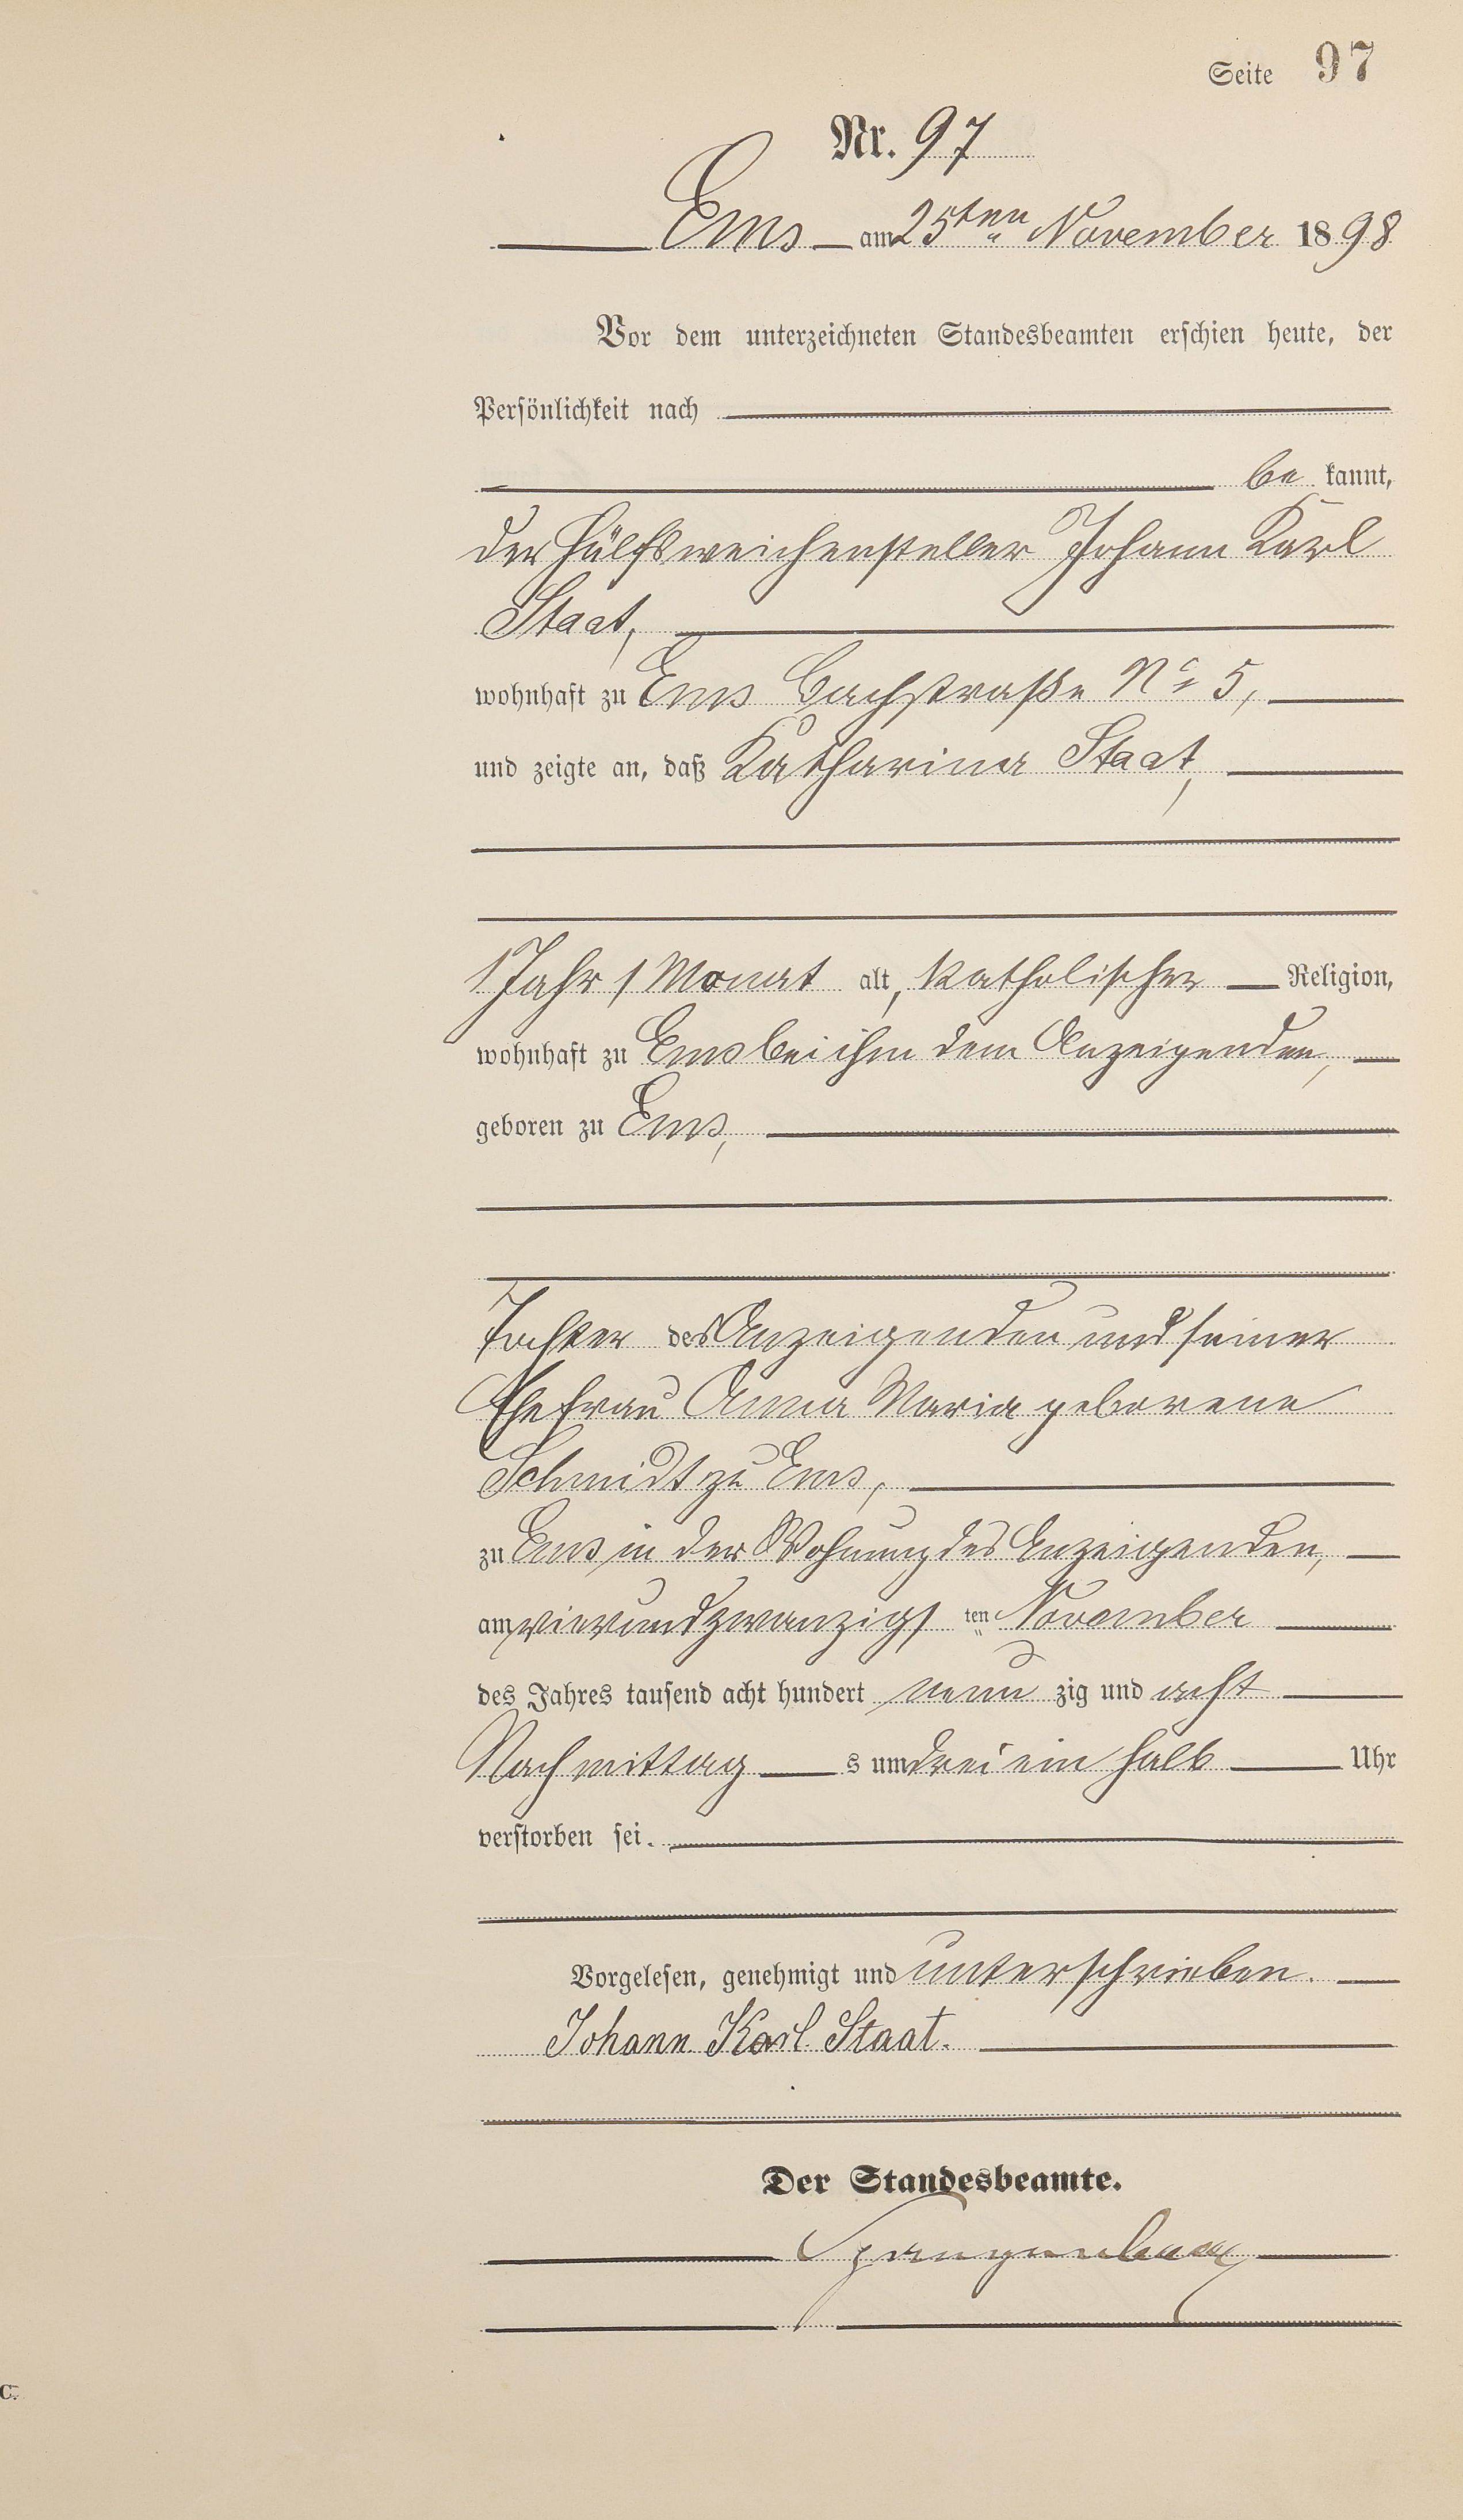 Seite 97
Nr. 97
Ems am 25ten November 1898
Vor dem unterzeichneten Standesbeamten erschien heute, der
Persönlichkeit nach
be kannt,
der Hülfsweichensteller Johann Karl
Staat,
wohnhaft zu Ems Bachstraße No 5,
und zeigte an, daß Katharina Staat,
1 Jahr 1 Monat alt, katholischer Religion,
wohnhaft zu Ems bei ihm dem Anzeigenden,
geboren zu Ems,
Tochter des Anzeigenden und seiner
Ehefrau Anna Maria geborene
Schmidt zu Ems,
zu Ems in der Wohnung des Anzeigenden,
am vierundzwanzigs ten November
des Jahres tausend acht hundert neun zig und acht
Nachmittag s um drei ein halb Uhr
verstorben sei.
Vorgelesen, genehmigt und unterschrieben.
Johann Karl Staat.
Der Standesbeamte.
C.